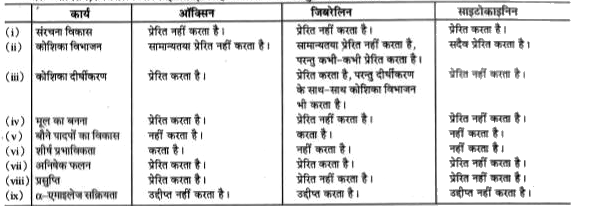 कार्य ऑक्सिन जिबरेलिन साइटोकाइनिन
(i) संरचना विकास प्रेरित नहीं करता है। प्रेरित नहीं करता है। प्रेरित करता है।
(ii) कोशिका विभाजन सामान्यतया प्रेरित नहीं करता है। सामान्यतया प्रेरित नहीं करता है, सदैव प्रेरित करता है।
परन्तु कभी-कभी प्रेरित करता है।
(iii) कोशिका दीर्घीकरण प्रेरित करता है। प्रेरित करता है, परन्तु दीर्घीकरण प्रेरित नहीं करता है।
के साथ-साथ कोशिका विभाजन
भी करता है।
(iv) मूल का बनना प्रेरित करता है। प्रेरित नहीं करता है। प्रेरित नहीं करता है।
(v) बौने पादपों का विकास नहीं करता है। करता है। नहीं करता है।
(vi) शीर्ष प्रभाविकता करता है। नहीं करता है। नहीं करता है।
(vii) अनिषेक फलन प्रेरित करता है। प्रेरित करता है। प्रेरित नहीं करता है।
(viii) प्रसुप्ति प्रेरित करता है। प्रेरित नहीं करता है। प्रेरित नहीं करता है।
(ix) α-एमाइलेज सक्रियता उद्दीप्त नहीं करता है। उद्दीप्त करता है। उद्दीप्त नहीं करता है।